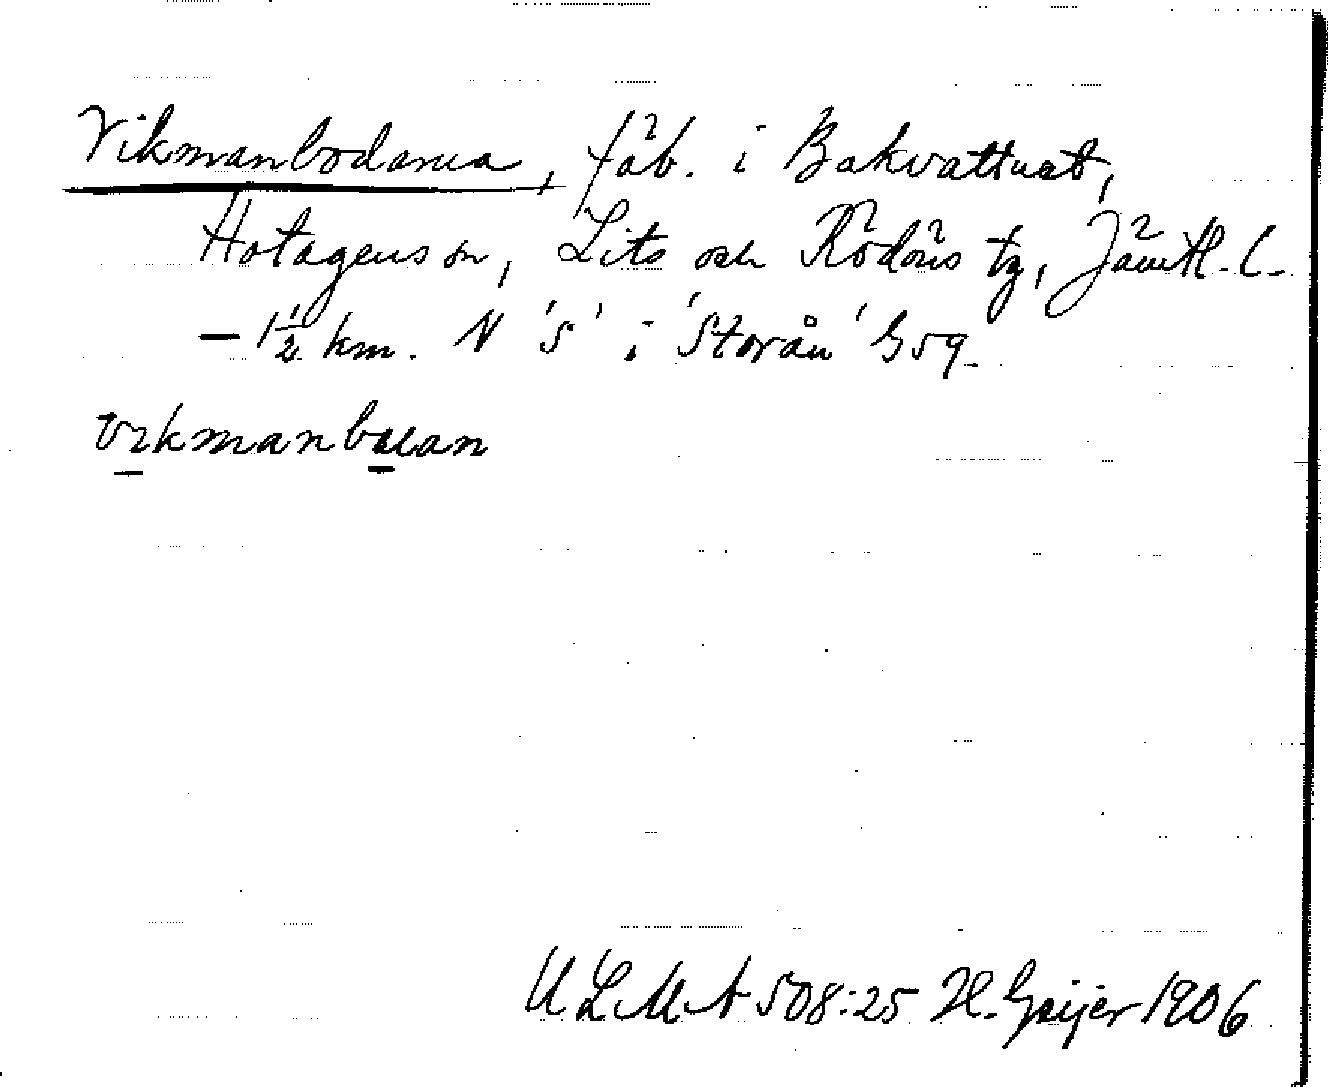 Vikmanbodarna, fäb. i Bakvattnet,
Hotagens sn, Lits och Rödöns tg, Jämtl. l.
— 1½ km. N 'S' i 'Storån' G59.
vıkmanbɷan
ULMA 508:25 H. Geijer 1906